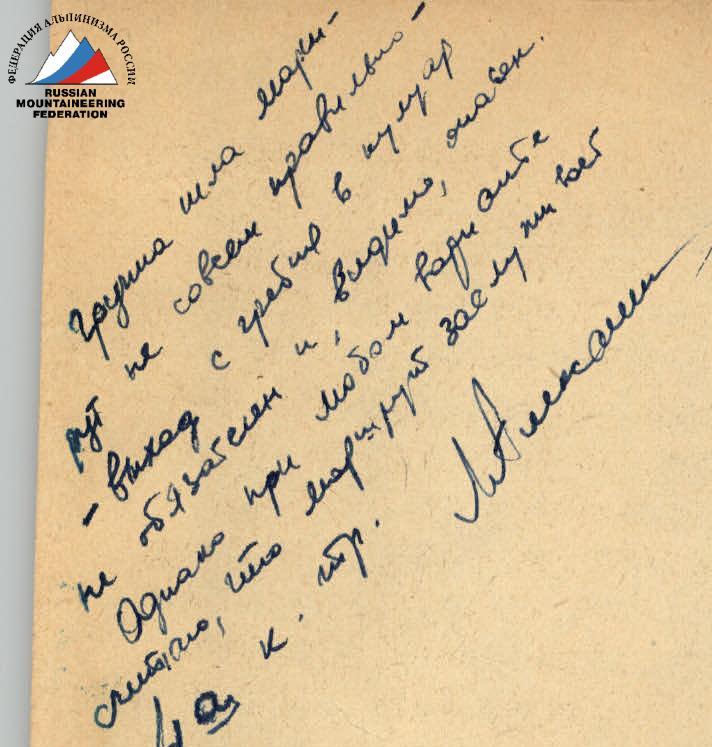 ФЕДЕРАЦИЯ АЛЬПИНИЗМА РОССИИ
RUSSIAN
MOUNTAINEERING
FEDERATION
Группа шла марш-
рут не совсем правильно -
- выход с гребня в кулуар
не обязателен и, видимо, опасен.
Однако при любом варианте
считаю, что маршрут заслуживает
к. тр.